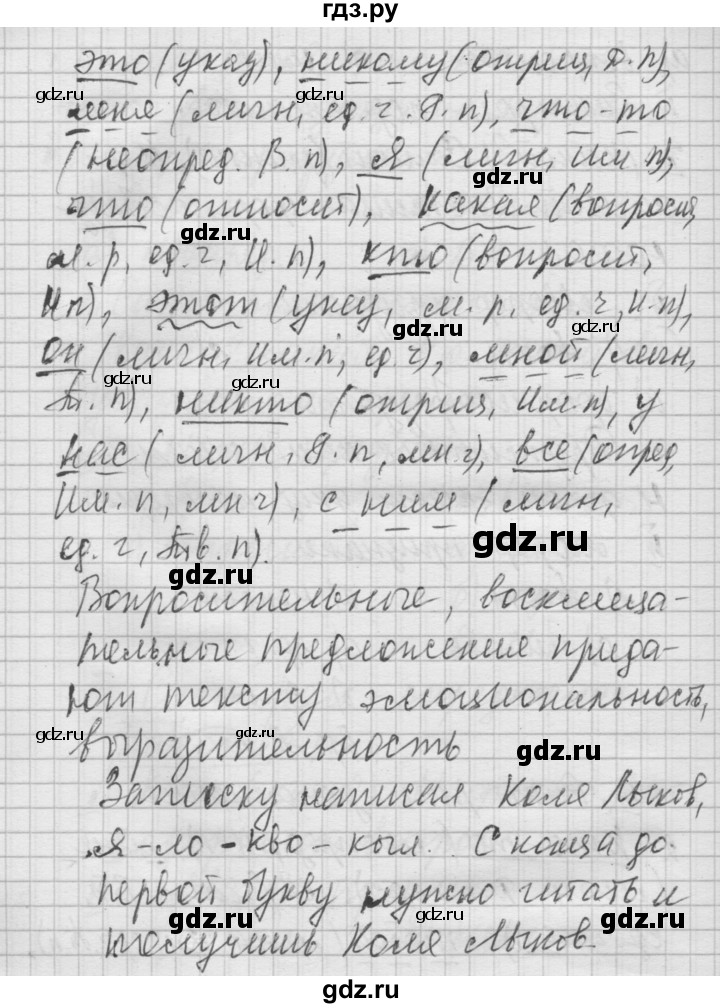 гдз.ру
это (указ), никому (отриц, д. п),
меня (личн, ед. ч. Р. п), что-то
(неопред. В. п), я (личн, Им п),
что (относит), какая (вопросит,
м. р, ед. ч, И. п), кто (вопросит,
И п), этот (указ, м. р, ед. ч, И. п),
он (личн, Им. п, ед. ч), мной (личн,
Т. п), никто (отриц, Им. п), у
нас (личн, Р. п, мн. ч), все (опред,
Им. п, мн ч), с ним (личн,
ед. ч, Тв. п).
Вопросительные, восклица-
тельные предложения прида-
ют тексту эмоциональность,
выразительность
Записку написал Коля Лыков,
Я-ло-кво-кыл. С конца до
первой букву нужно читать и
получишь Коля Лыков
gdz.ru